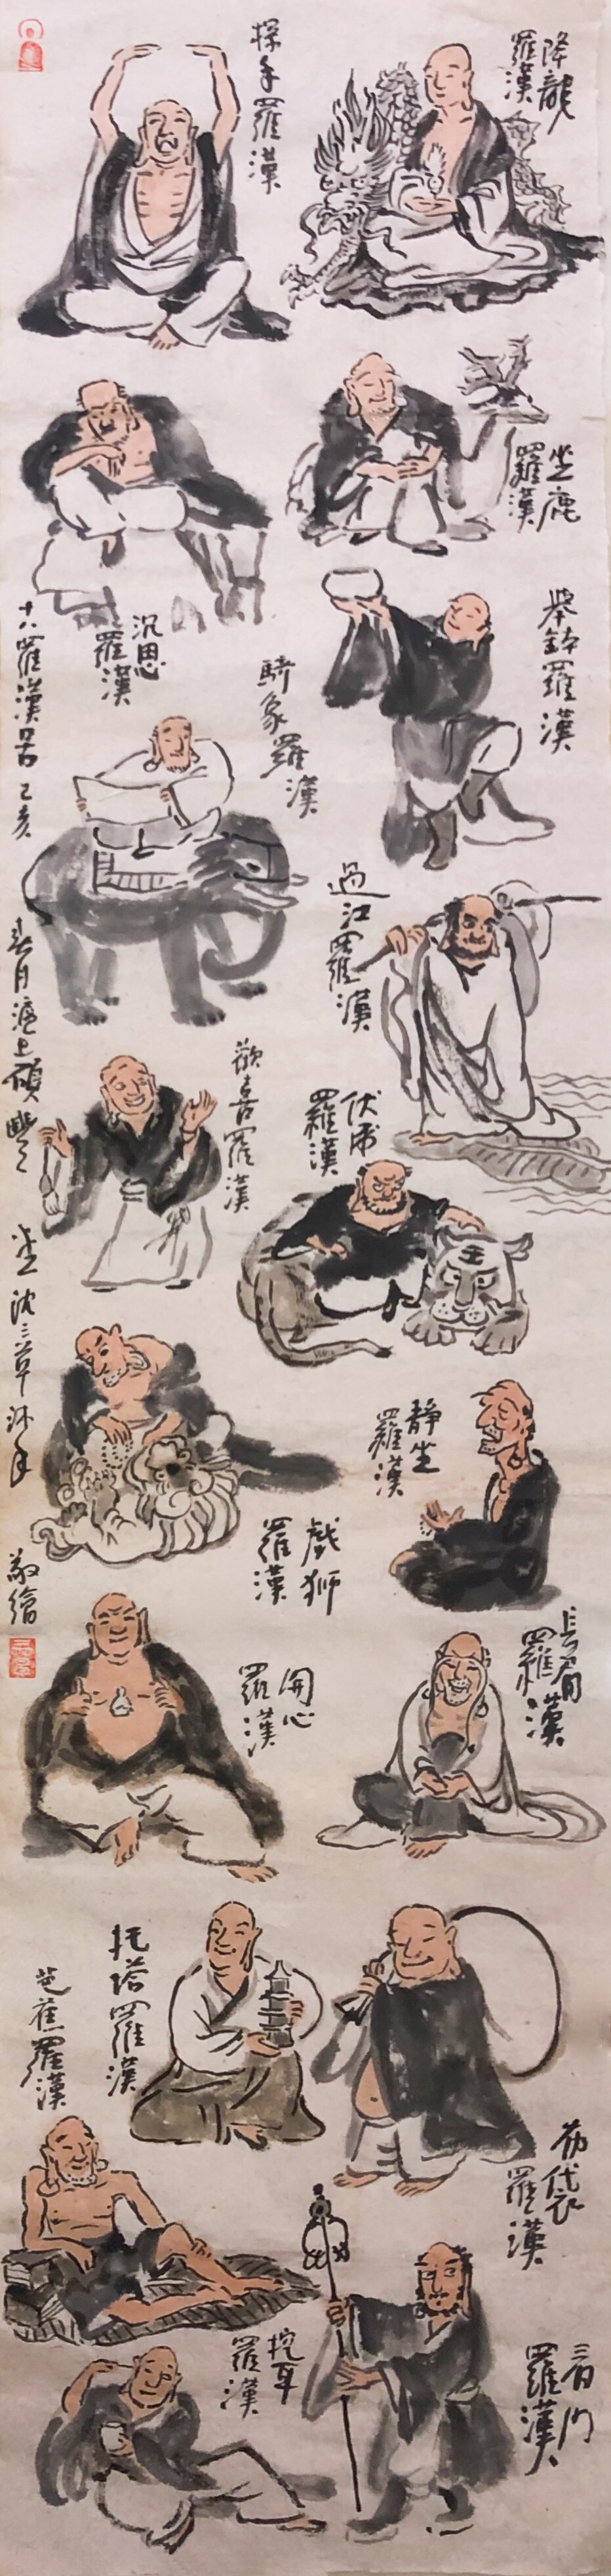 降龍
羅漢
探手羅漢
坐鹿
羅漢
舉鉢羅漢
沉思
羅漢
騎象羅漢
過江羅漢
歡喜羅漢
伏虎
羅漢
靜坐
羅漢
戲獅
羅漢
長眉
羅漢
開心
羅漢
托塔羅漢
芭蕉羅漢
布袋
羅漢
挖耳
羅漢
看門
羅漢
十八羅漢圖 乙亥
春月滬上碩豐
沈三草沐手
敬繪